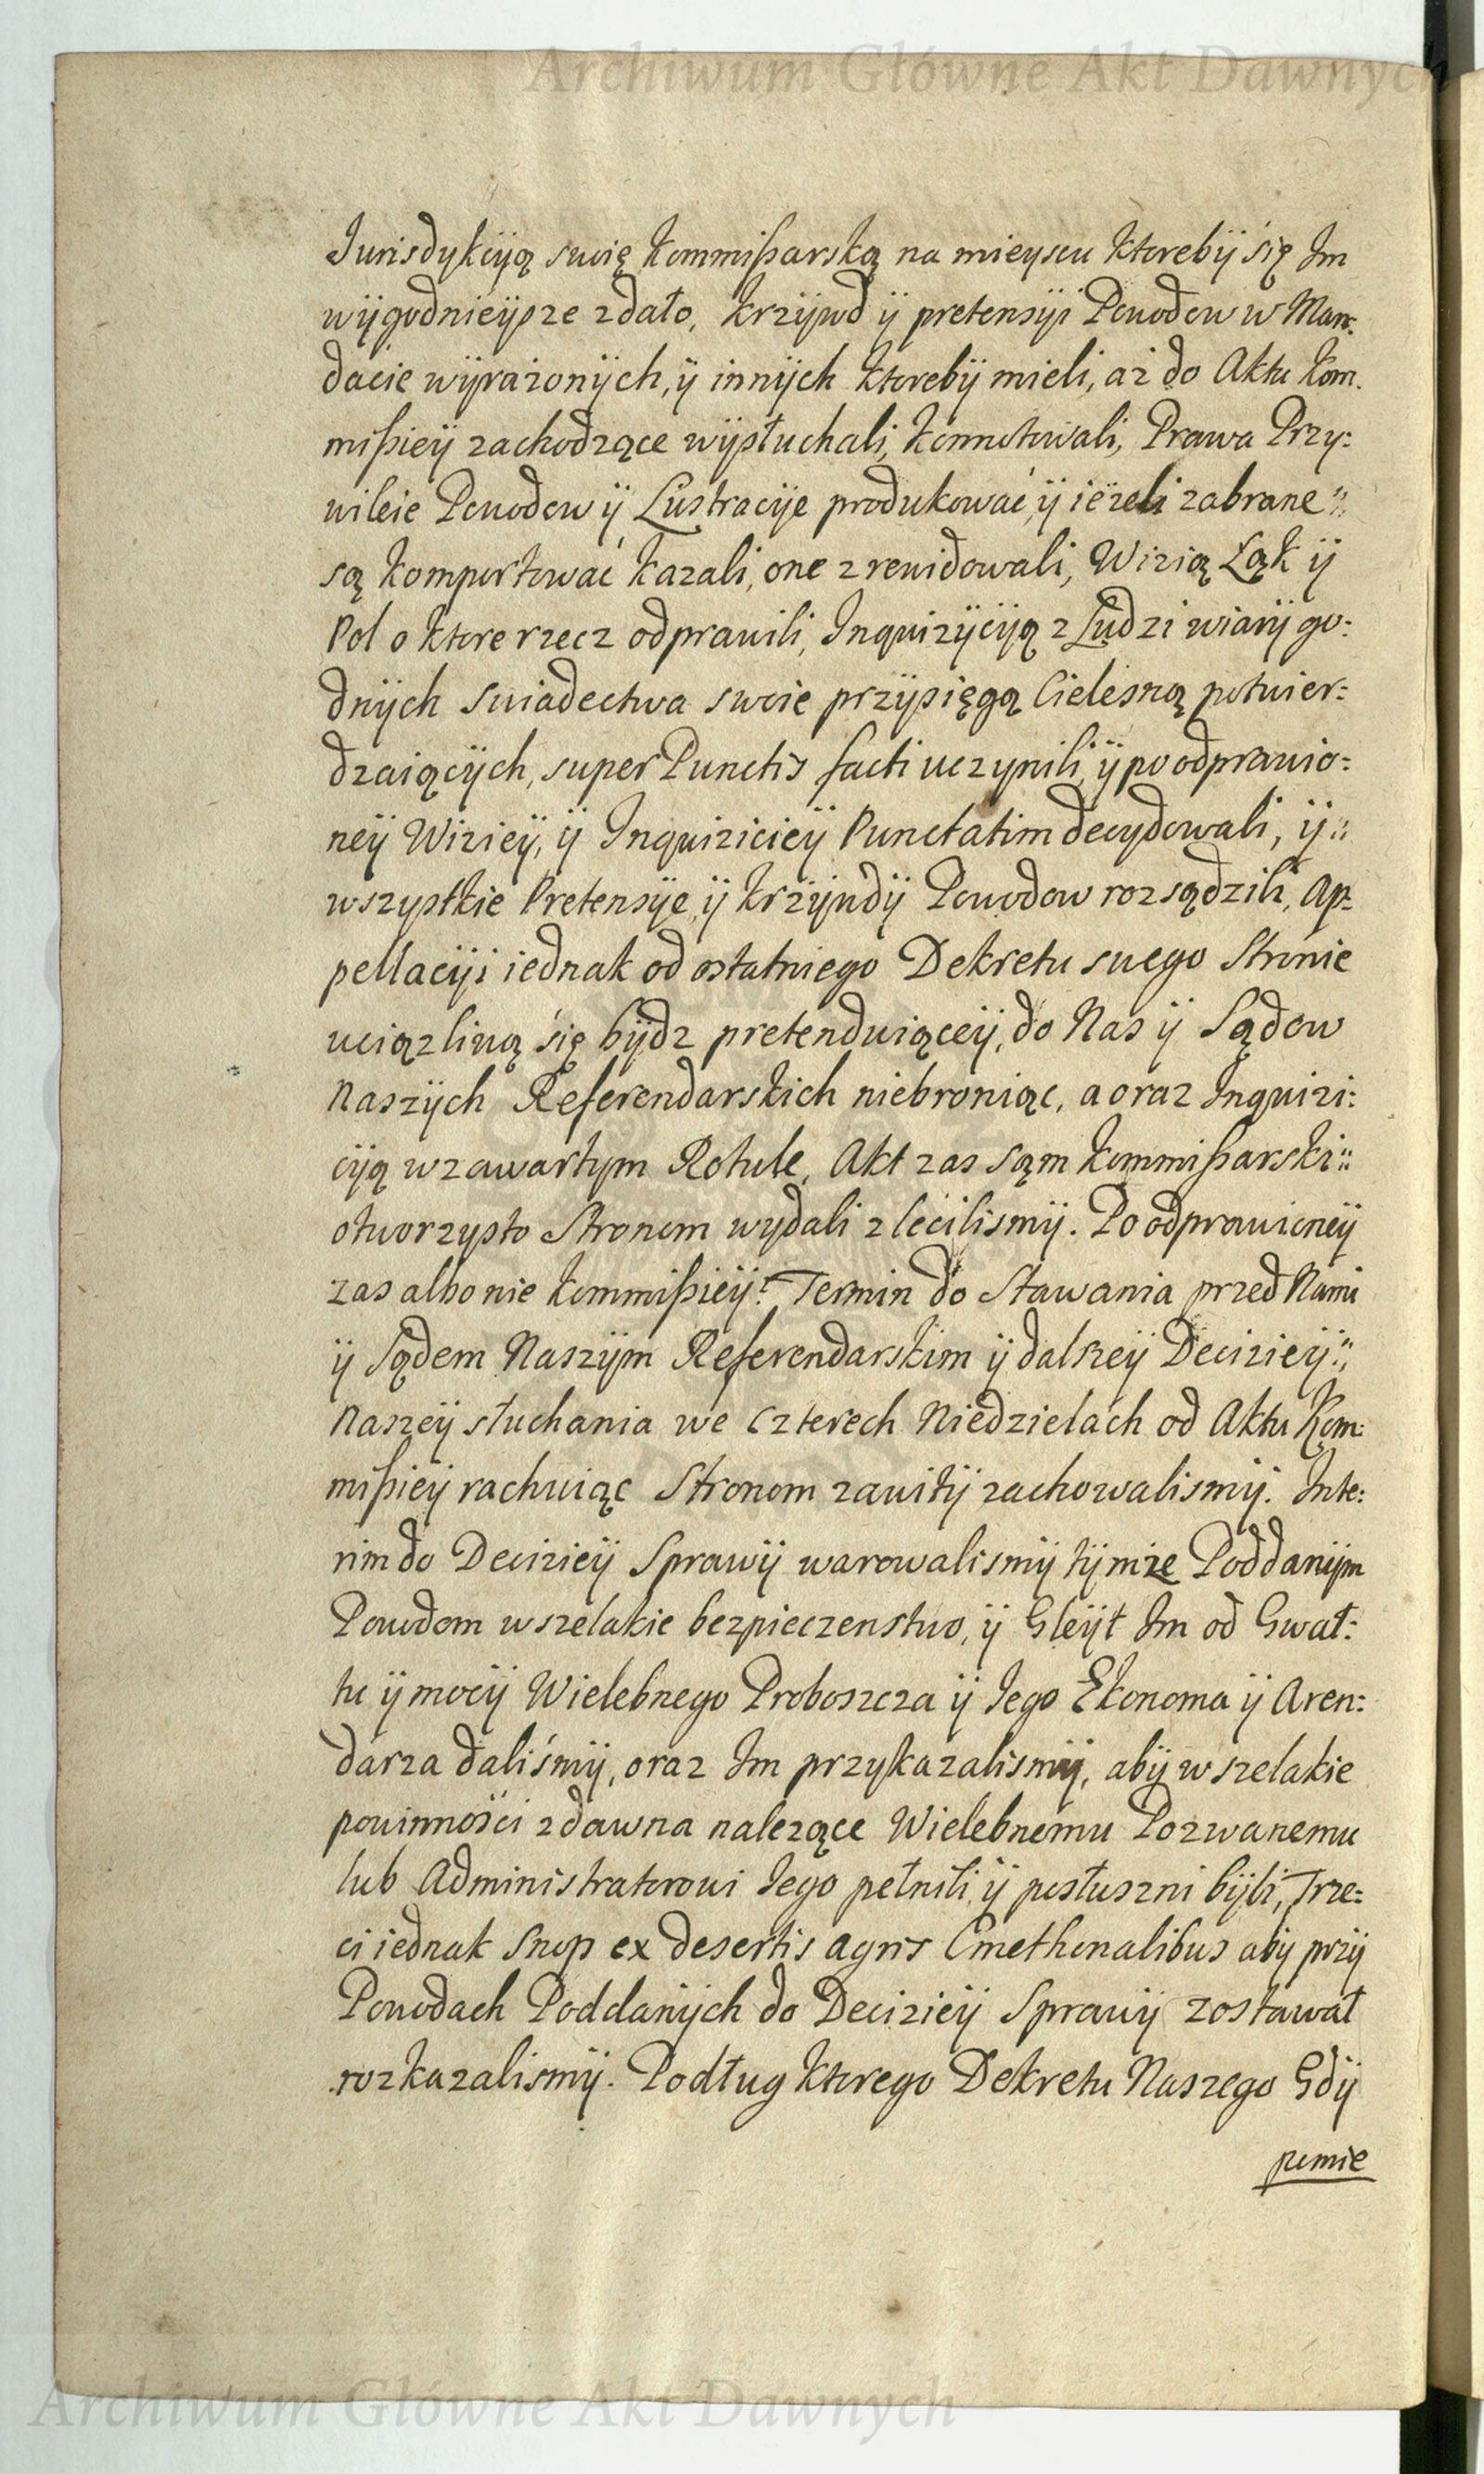 Archiwum Główne Akt Dawnych
Jurisdykcÿą swoię kommißarską na mieyscu ktorebÿ się Jm
wÿgodnieÿsze zdało, krzÿwd ÿ pretensÿi Powodow w Man:
dacie wÿrazonÿch, ÿ innÿch ktorebÿ mieli, aż do Aktu Kom:
mißieÿ zachodzące wÿsłuchali, konnotowali, Prawa Przy:
wileie Powodow ÿ Lustracÿe produkować ÿ ieżeli zabrane
są komportować kazali, one zrewidowali, Wizią Łąk ÿ
Pol o ktore rzecz odprawili, Inquizÿcÿą z Ludzi wiarÿ go:
dnÿch swiadectwa swoie przÿsięgą Cielesną potwier:
dzaiącÿch, super Punctis facti uczynili ÿ po odprawio:
neÿ Wizieÿ, ÿ Inquizicieÿ Punctatim decydowali, ÿ
wszystkie Pretensÿe ÿ krzÿwdÿ Powodow rozsądzili, Ap:
pellacÿi iednak od ostatniego Dekretu swego Stronie
uciązliwą się bÿdz pretenduiąceÿ, do Nas ÿ Sądow
Naszÿch Referendarskich niebroniąc, a oraz Inquizi:
cÿą w zawartym Rotule, Akt zas sąm kommißarski
otworzysto Stronom wydali zleciliśmÿ. Po odprawioneÿ
zas albo nie kommißieÿ: Termin do Stawania przed Nami
ÿ Sądem Naszÿm Referendarskim ÿ dalszeÿ Decizieÿ
Naszeÿ słuchania we czterech Niedzielach od Aktu Kom:
mißieÿ rachuiąc Stronom zawitÿ zachowalismÿ. Inte:
rim do Decizieÿ Sprawÿ warowalismÿ tÿmże Poddanÿm
Powodom wszelakie bezpieczenstwo, ÿ Gleÿt Jm od Gwał:
tu ÿ mocÿ Wielebnego Proboszcza ÿ Jego Ekonoma ÿ Aren:
darza daliśmÿ, oraz Jm przykazalismÿ, abÿ wszelakie
powinności zdawna nalezące Wielebnemu Pozwanemu
lub Administratorowi Jego pełnili ÿ posłuszni bÿli, Trze:
ci iednak Snop ex desertis agris Cmethonalibus abÿ przÿ
Powodach Poddanÿch do Decizieÿ Sprawÿ zostawał
rozkazalismÿ. Podług ktorego Dekretu Naszego Gdÿ
pomie
Archiwum Główne Akt Dawnych